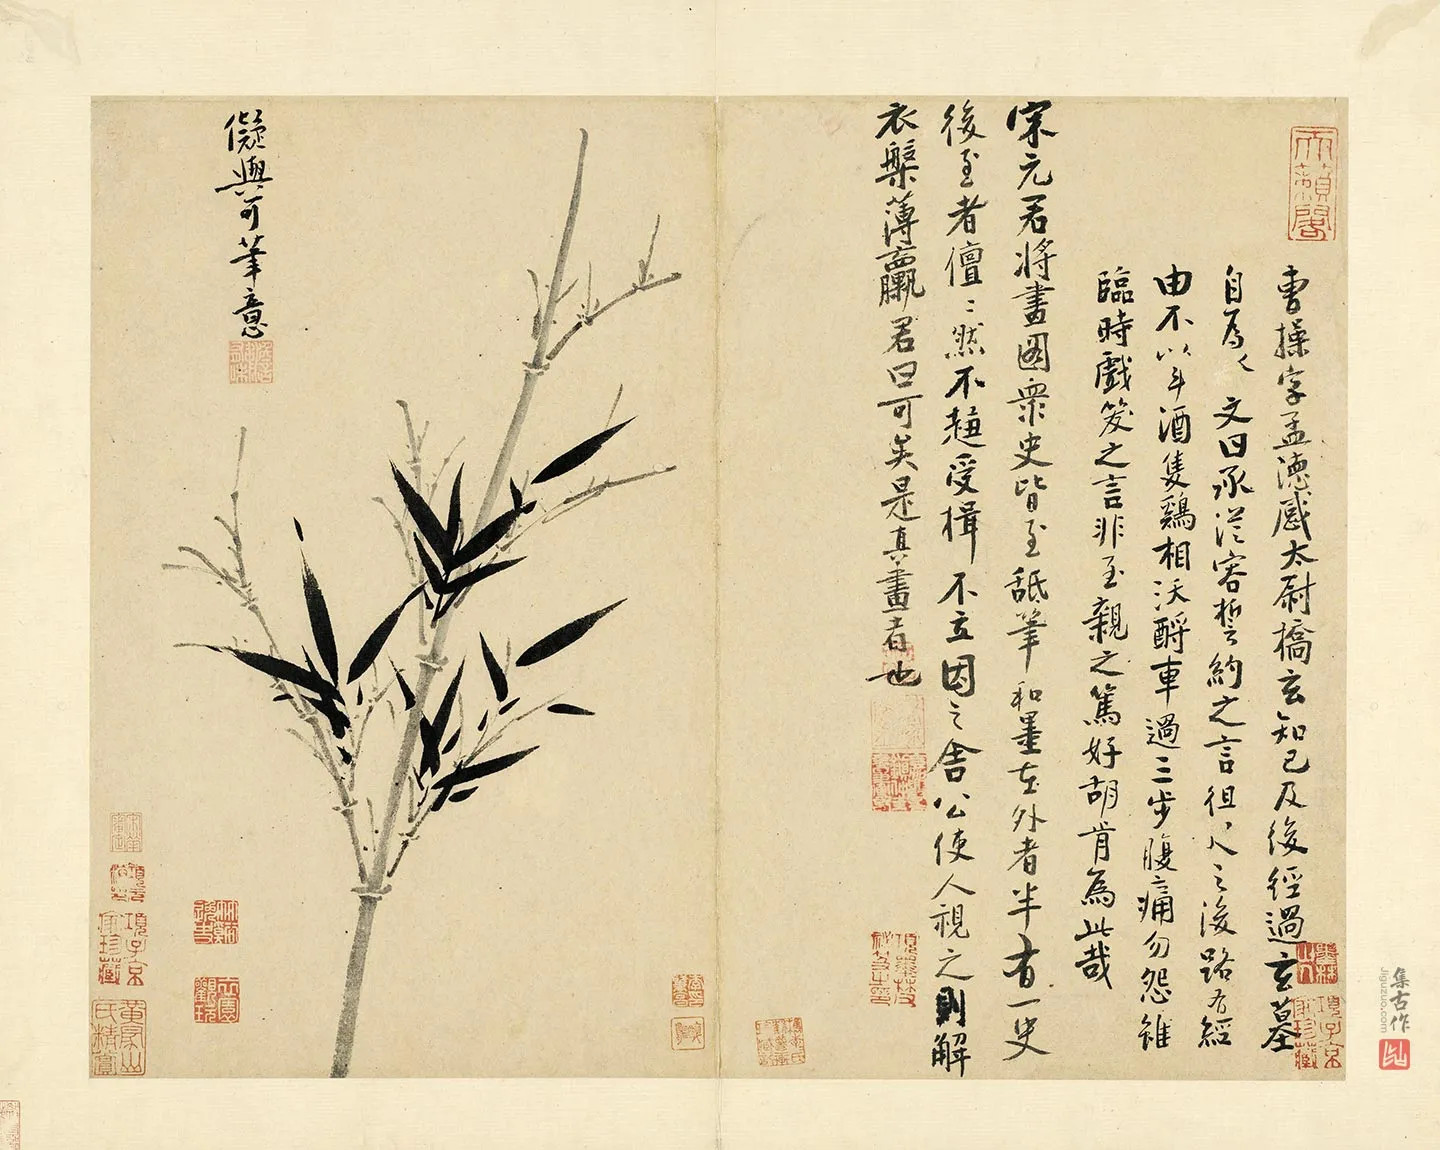 曹操字孟德感太尉橋玄知己及後經過玄墓
自為文曰承從容誓約之言徂人之後路有經
由不以斗酒隻鷄相沃酹車過三步腹痛勿怨雖
臨時戲笑之言非至親之篤好胡肯為此哉
宋元君將畫圖衆史皆至舐筆和墨在外者半有一史
後至者儃〻然不趨受楫不立因之舍公使人視之則解
衣槃薄臝君曰可矣是真畫者也
儗與可筆意
天籟閣
項子京家珍藏
集古作
Jiguzuo.com